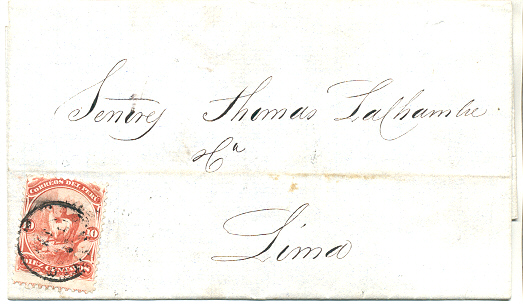 Señores Thomas LaChambre
Ca
Lima
CORREOS DEL PERU
10
DIEZ CENTAVOS